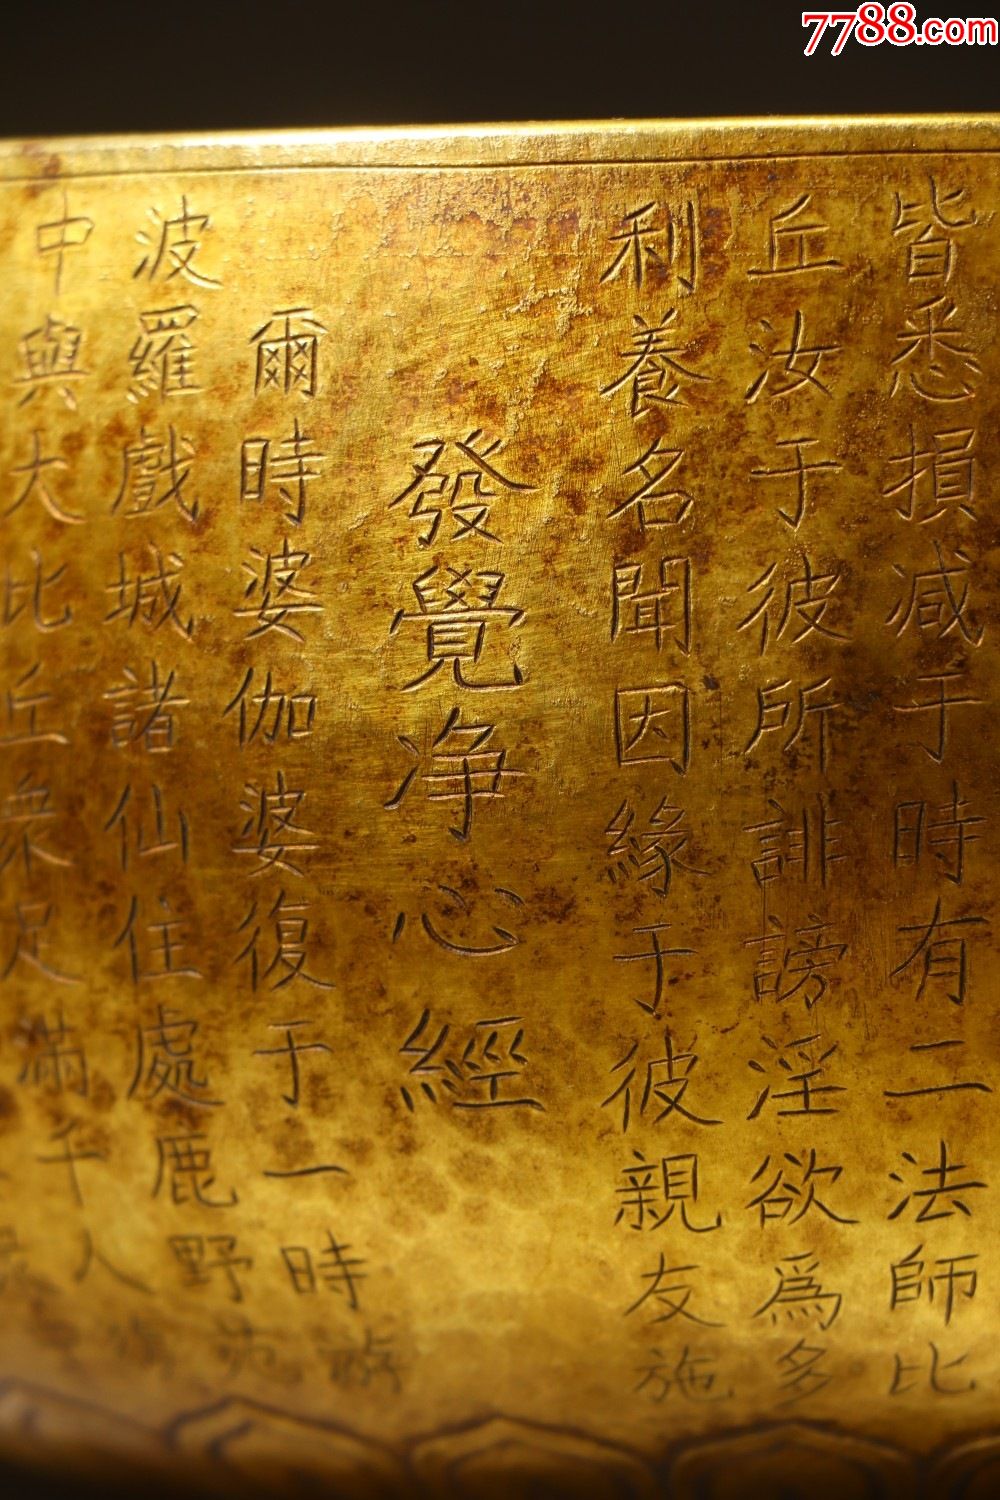 7788.com
皆悉損减于時有二法師比
丘汝于彼所誹謗淫欲爲多
利養名聞因緣于彼親友施
發覺净心經
爾時婆伽婆復于一時游
波羅戲城諸仙住處鹿野苑
中與大比丘衆足滿千人